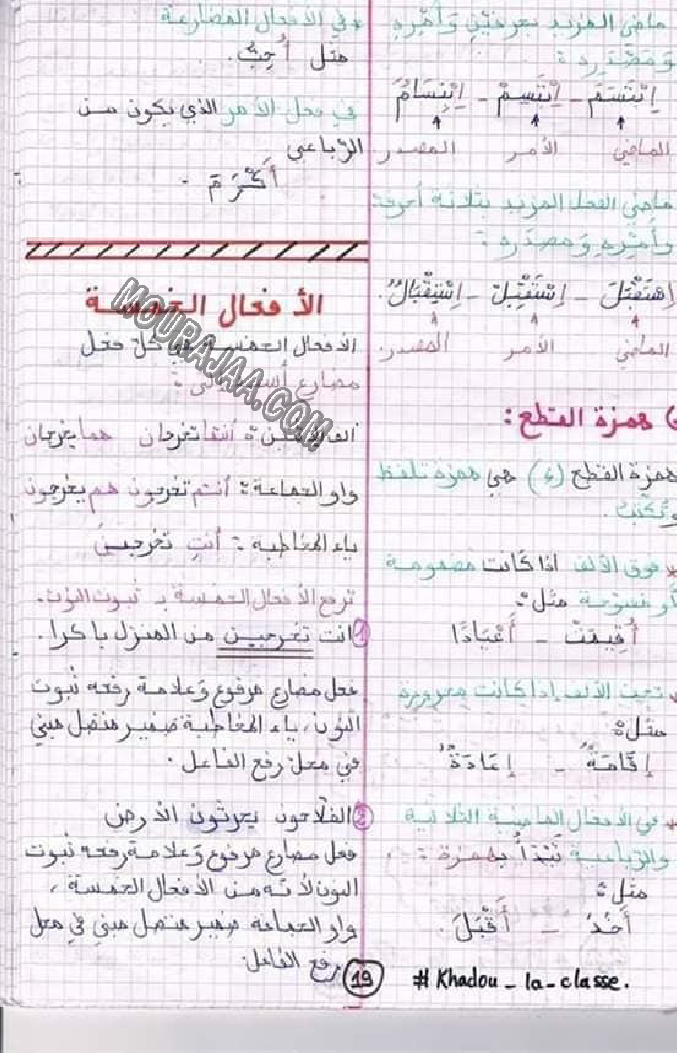 ماضي المزيد بحرفين وَأمْرِهِ
وَمَصْدَرِهِ :
اِبْتَسَمَ - اِبْتَسِمْ - اِبْتِسَامٌ
الماضي الأمر المصدر
ماضي الفعل المزيد بثلاثة أحرف
وأمْرِهِ وَمصدَرِهِ :
اِسْتَقْبَلَ - اِسْتَقْبِلْ - اِسْتِقْبَالٌ.
الماضي الأمر المصدر
همزة القطع :
همزة القطع (ء) هي همزة تلفظ
وتُكتبُ .
* فوق الألف اذا كانت مضمومة
أو مفتوحة مثل :
أُقِيمَتْ - أَعْيَادًا
* تحت الألف إذا كانت مجرورة
مثل :
إِقَامَةٌ - إِعَادَةٌ
* في الأفعال الماضية الثلاثية
والرباعية تَبْتَدأُ بِهَمزة :
مثل :
أَخَذَ - أَقْبَلَ .
# Khadou _ la _ classe.
* في الأفعال المضارعة
مثل أُحِبُّ .
في فعل الأمر الذي يكون من
الرّباعي
أَكْرِمْ .
الأفعال الخمسة
الأفعال الخمسة هي كل فعل
مضارع أسند إلى :
ألف الاثنين : أنتما تخرجان هما يخرجان
واو الجماعة : أنتم تخرجون هم يخرجون
ياء المخاطبة : أنتِ تخرجينَ
ترفع الأفعال الخمسة بـ ثبوت النون.
1 انت تخرجين من المنزل باكرا .
فعل مضارع مرفوع وَعلامة رفعه ثبوت
النون، ياء المخاطبة ضمير متصل مبني
في محل رفع الفاعل .
2 الفلاحون يحرثون الأرض
فعل مضارع مرفوع وَعلامة رفعه ثبوت
النون لأنّه من الأفعال الخمسة ،
واو الجماعة ضمير متصل مبني في محل
رفع الفاعل
19
MOURAJAA.COM